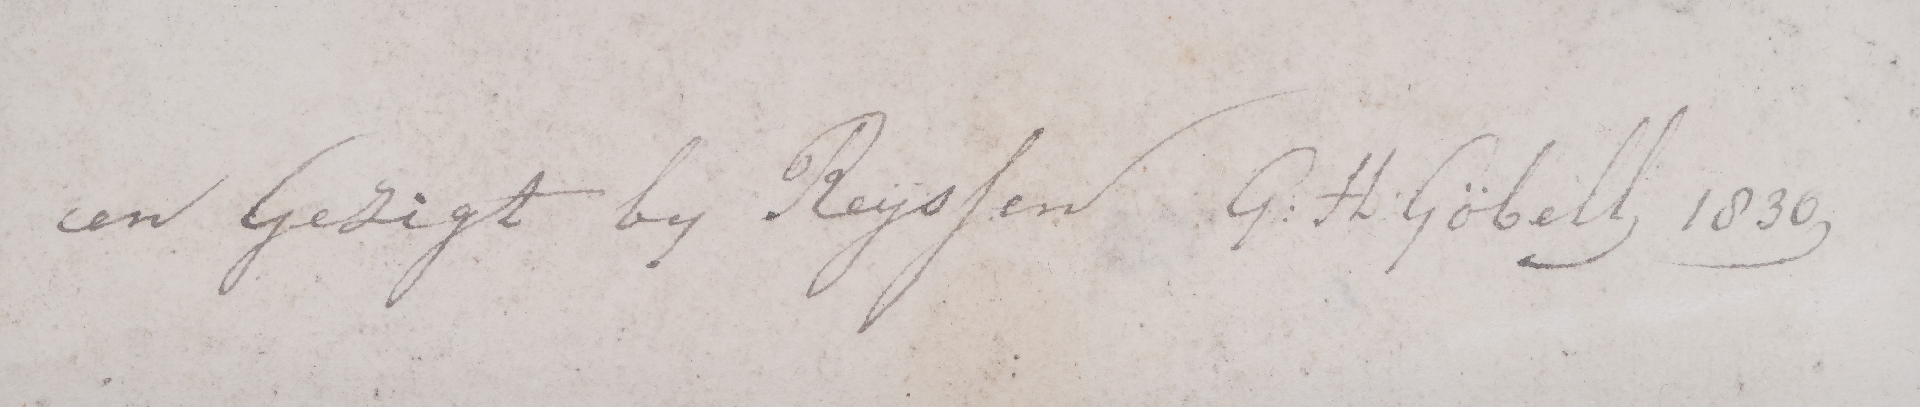 een Gezigt by Reyssen G: H: Göbell 1830